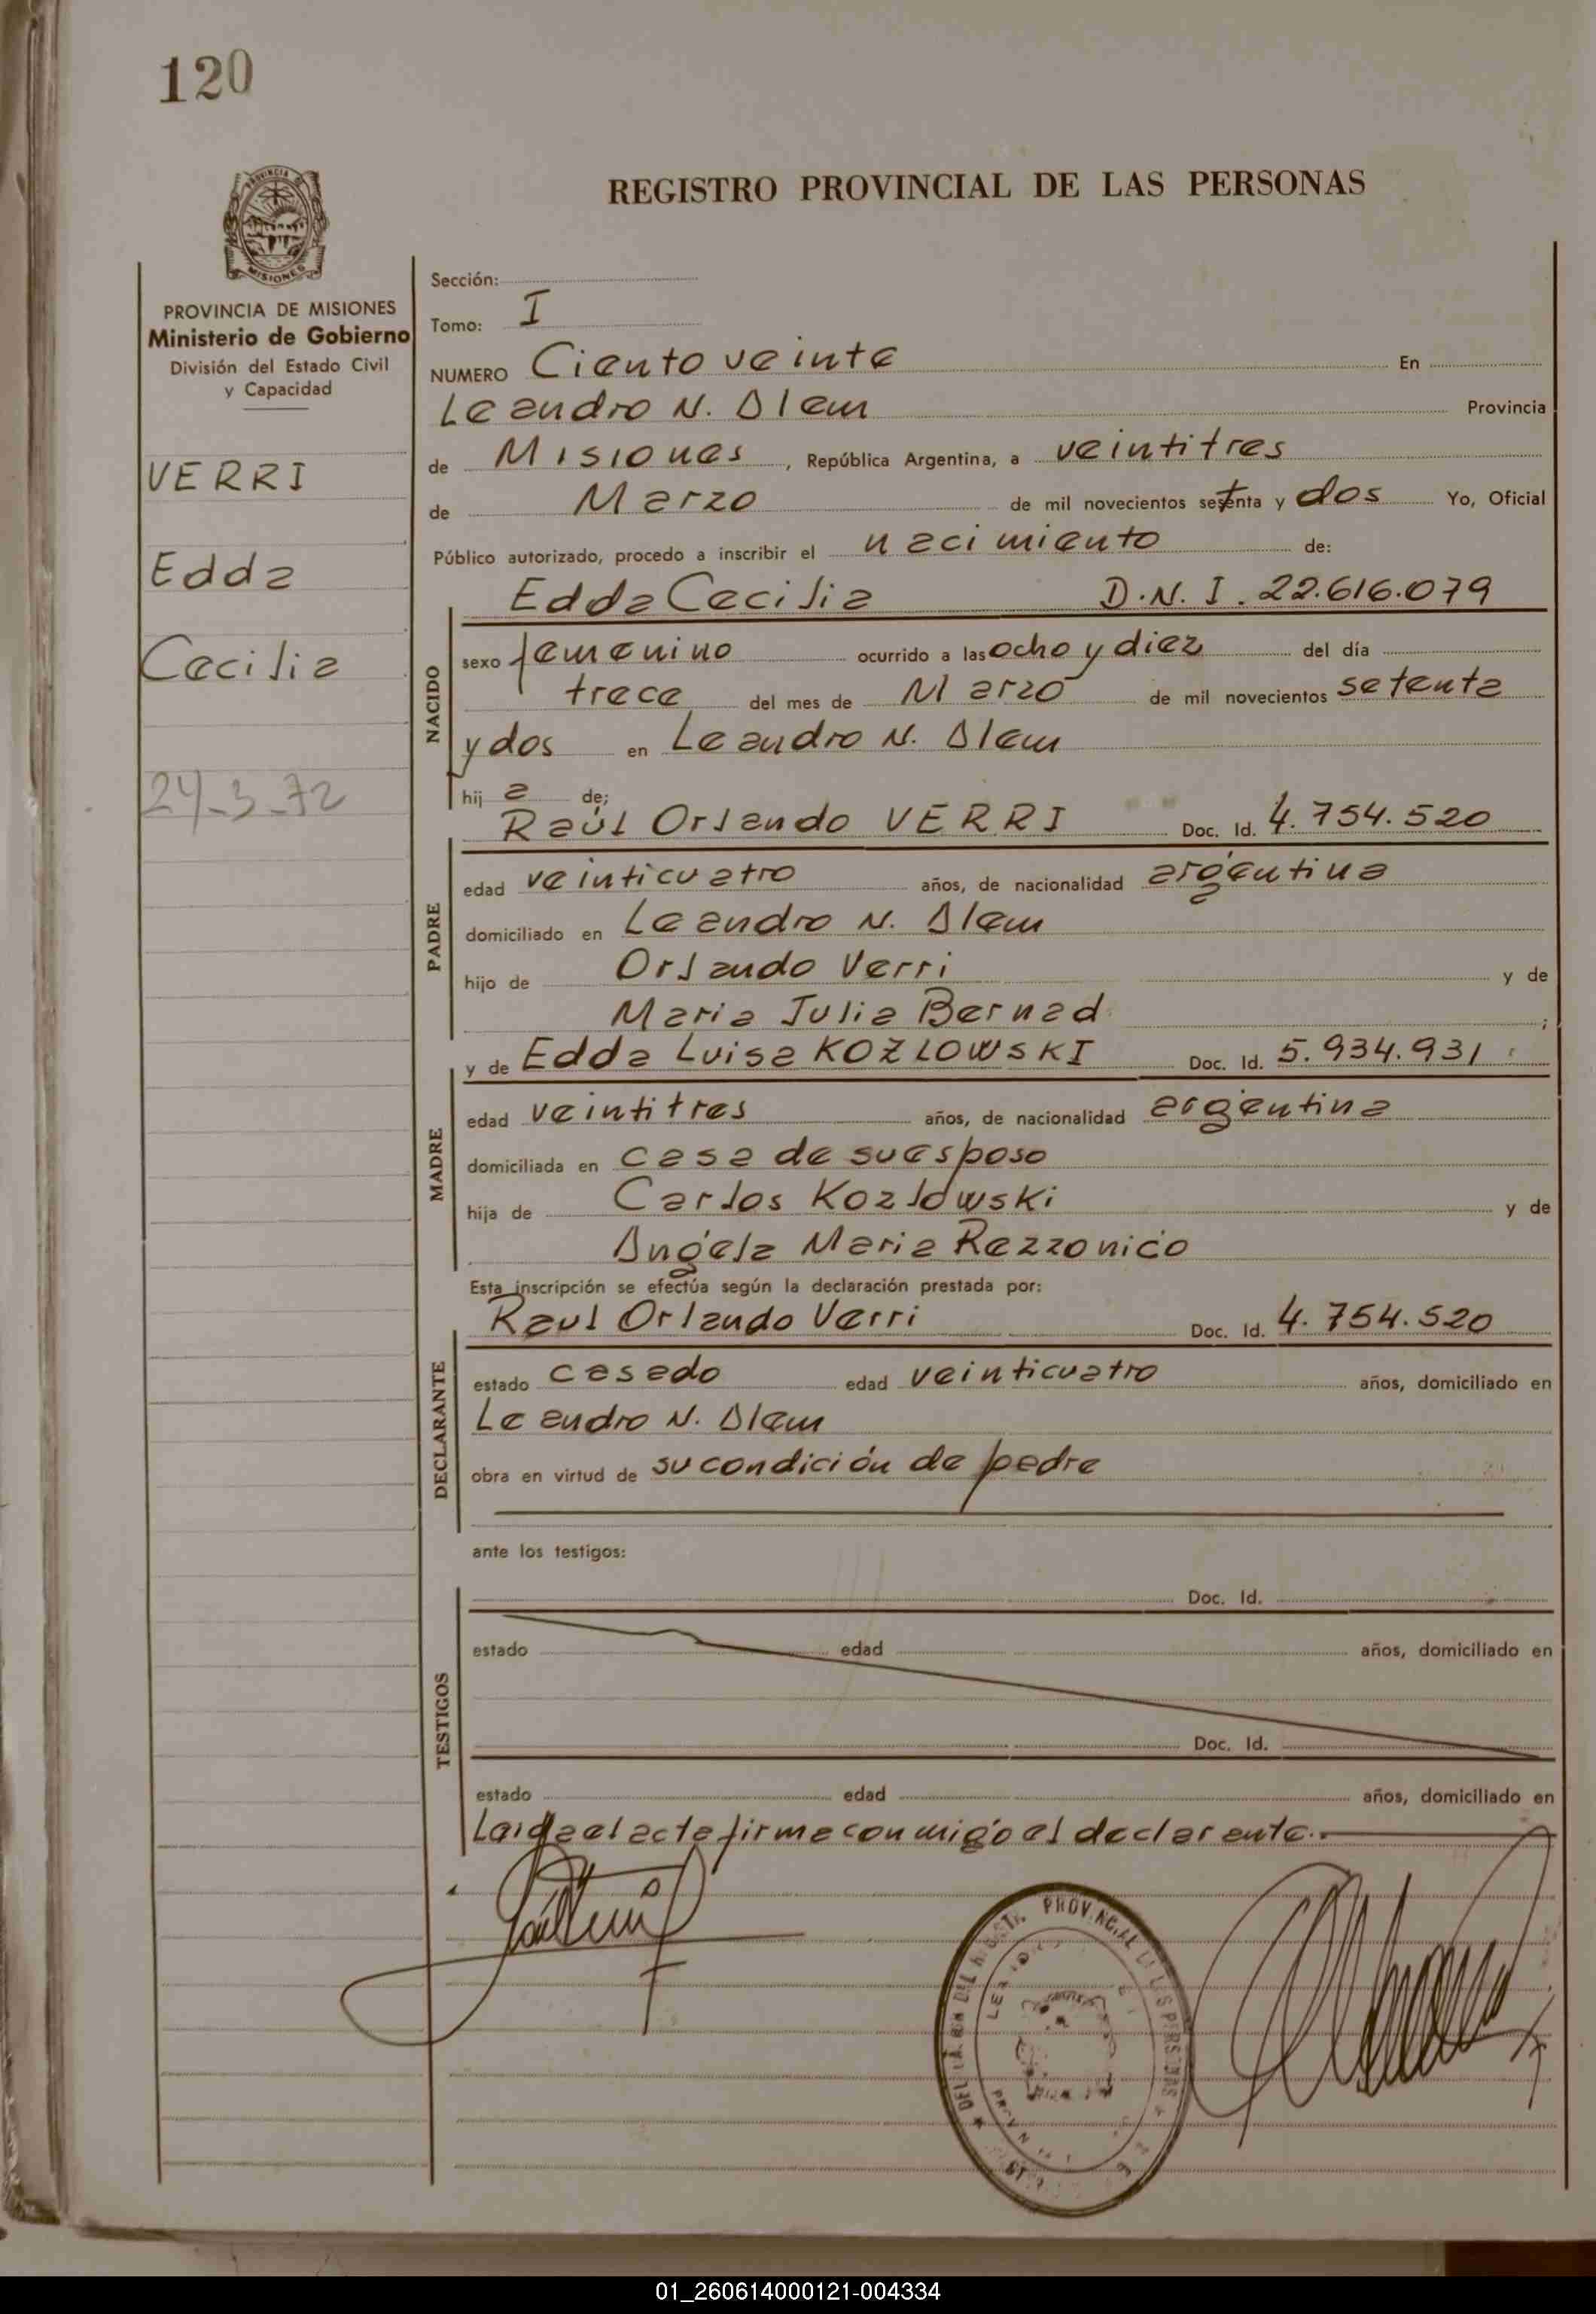 120
REGISTRO PROVINCIAL DE LAS PERSONAS
PROVINCIA DE MISIONES
Ministerio de Gobierno
División del Estado Civil
y Capacidad
VERRI
Edda
Cecilia
24-3-72
Sección:
Tomo: I
NUMERO Ciento veinte En
Leandro N. Alem Provincia
de Misiones, República Argentina, a veintitres
de Marzo de mil novecientos setenta y dos Yo, Oficial
Público autorizado, procedo a inscribir el nacimiento de:
Edda Cecilia D.N.I. 22.616.079
NACIDO
sexo femenino ocurrido a las ocho y diez del día
trece del mes de Marzo de mil novecientos setenta
y dos en Leandro N. Alem
hija de;
Raúl Orlando VERRI Doc. Id. 4.754.520
PADRE
edad veinticuatro años, de nacionalidad argentina
domiciliado en Leandro N. Alem
hijo de Orlando Verri y de
Maria Julia Bernad;
y de Edda Luisa KOZLOWSKI Doc. Id. 5.934.931
MADRE
edad veintitres años, de nacionalidad argentina
domiciliada en casa de su esposo
hija de Carlos Kozlowski y de
Angela Maria Rezzonico
Esta inscripción se efectúa según la declaración prestada por:
Raul Orlando Verri Doc. Id. 4.754.520
DECLARANTE
estado casado edad veinticuatro años, domiciliado en
Leandro N. Alem
obra en virtud de su condición de padre
ante los testigos:
Doc. Id.
TESTIGOS
estado edad años, domiciliado en
Doc. Id.
estado edad años, domiciliado en
Leida el acta firma conmigo el declarante.-
PROVINCIAL DE LAS PERSONAS
01_260614000121-004334